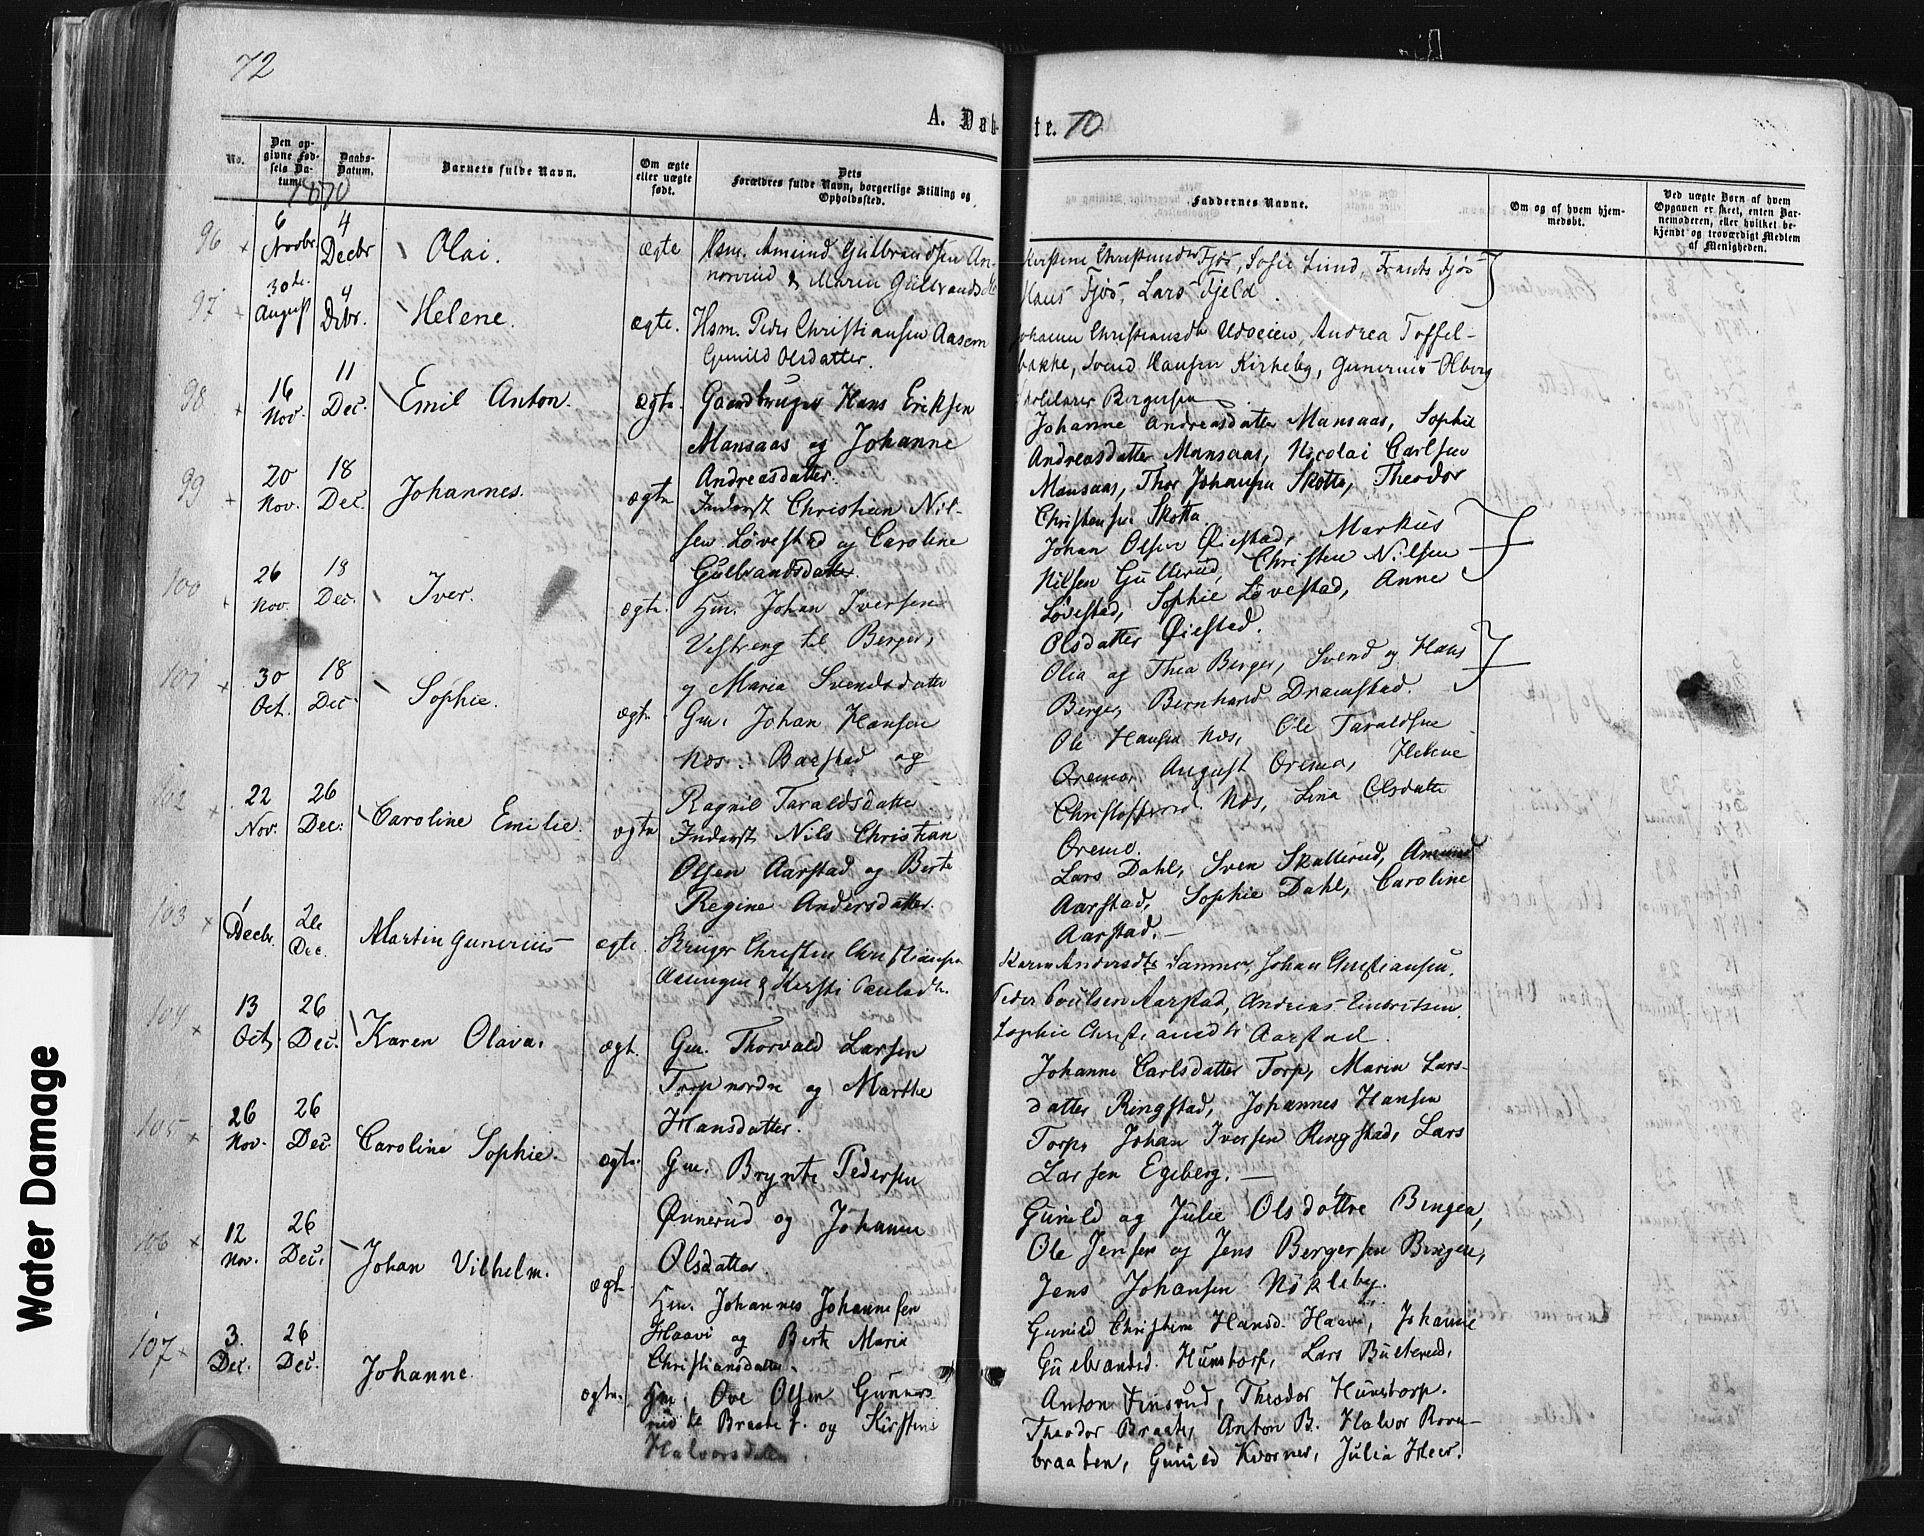 72
A. Døb te. 70
No.
Den op-
givne Fød-
sels Da-
tum.
Daabs-
Datum.
Barnets fulde Navn.
Om ægte
eller uægte
født.
Dets
Forældres fulde Navn, borgerlige Stilling og
Opholdssted.
Faddernes Navne.
Om og af hvem hjem-
medøbt.
Ved uægte Børn af hvem
Opgaven er skeet, enten Bar-
nemoderen, eller hvilket be-
kjendt og troværdigt Medlem
af Menigheden.
1870
96 6 Novbr. 4 Decbr Olai. ægte Hsm. Amund Gulbrandsen
& Maria Gulbrandsd
Fjøs, Sofie Lund, Frants Fjøs
Hans Fjøs, Lars Fjeld.
97 30te August 4 Dcbr. Helene. ægte. Hsm. Peder Christiansen Aasern
Gunild Olsdatter.
Andrea Toffel-
bakke, Svend Hansen Kirkeby, Gunerius Olberg
Bergersen
98 16 Nov. 11 Dec. Emil Anton. ægte. Gaardbruger Hans Eriksen
Mansaas og Johanne
Andreasdatter.
Johanne Andreasdatter Mansaas, Sophie
Andreasdatter Mansaas, Nicolai Carlsen
Mansaas, Thor Johansen Skotta, Theodor
Christensen Skotta
99 20 Nov. 18 Dec. Johannes. ægte Inderst Christian Nil-
sen Løvestad og Caroline
Gulbrandsdatter.
Johan Olsen Øiestad, Markus
Nilsen Gullerud, Christen Nilsen
Løvestad, Sophie Løvestad, Anne
Olsdatter Øiestad.
100 26 Nov. 18 Dec. Iver. ægte. Hm. Johan Iversen
Vestreng til Berger,
og Maria Svendsdatter
Olia og Thea Berger, Svend og Hans
Berger, Bernhard Dramstad.
101 30 Oct. 18 Dec. Sophie. ægte Gm. Johan Hansen
Næs i Barstad og
Ragnil Taraldsdatter
Ole Hansen Næs, Ole Taraldsen
Oremo, August Oremo, Helene
Christoffersd. Næs, Lina Olsdatter
Oremo.
102 22 Nov. 26 Dec. Caroline Emilie. ægte Inderst Nils Christian
Olsen Aarstad og Berte
Regine Andersdatter.
Lars Dahl, Sven Skallerud, Amund
Aarstad, Sophie Dahl, Caroline
Aarstad.
103 1 Decbr. 26 Dec. Martin Gunerius ægte. Bruger Christen Christiansen
& Kersti
Karen Andersdtr Sanner, Johan Christiansen,
Peder Poulsen Aarstad, Andreas
Sophie Aarstad.
104 13 Oct. 26 Dec. Karen Olava. ægt. Gm. Thorvald Larsen
Torp nordre og Marthe
Hansdatter.
Johanne Carlsdatter Torp, Maren Lars-
datter Ringstad, Johannes Hansen
Torp, Johan Iversen Ringstad, Lars
Larsen Egeberg.
105 26 Nov. 26 Dec. Caroline Sophie. ægte. Gm. Brynte Pedersen
Ønnerud og Johanne
Olsdatter
Gunild og Julie Olsdøttre Bingen,
Ole Jensen og Jens Bergersen Bingen,
Jens Johansen Nökleby.
106 12 Nov. 26 Dec. Johan Vilhelm. ægt. Hm. Johannes Johannesen
Haavi og Berte Maria
Christiansdatter.
Gunild Christine Hansd. Haavi, Johanne
Gulbrandsd. Hunstorp, Lars Bullerud,
Anton Finsrud, Theodor Hunstorp.
107 3. Dec. 26 Dec. Johanne. ægte. Hm. Ove Olsen Gunners
rud til Braate og Kirstine
Halvorsdatter.
Theodor Braate, Anton B. Halvor Roven-
braaten, Gunild Kvornes, Julia Heer.
Water Damage